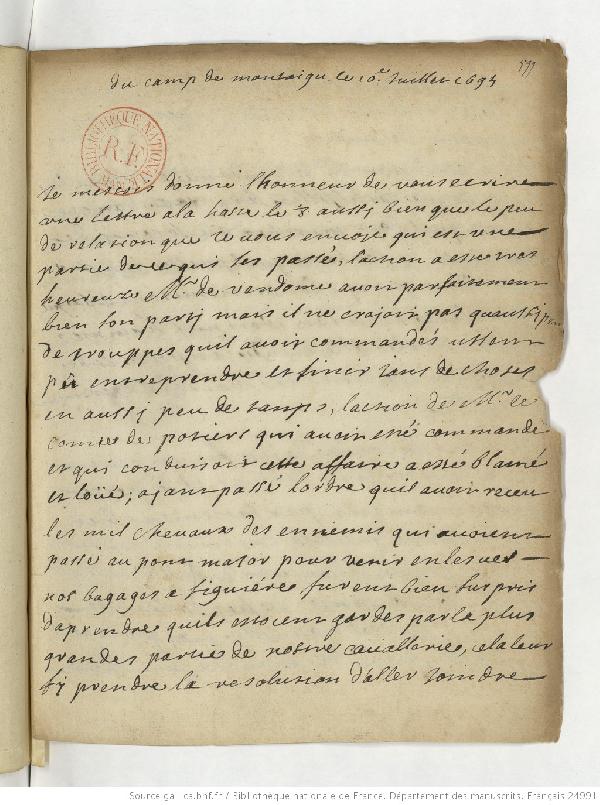 177
du camp de montaigu le 10e Juillet 1694
BIBLIOTHEQUE NATIONALE
R.F.
Je mestois donné lhonneur de vous ecrire
une lettre a la haste le 8 aussj bien que le peu
de relation que Je vous envoje qui est une
partie de ce qui ses passé, laction a esté tres
heureuze Mr. de vendome avoit parfaitement
bien son partj mais il ne crajoit pas quaussy peu
de trouppes quil avoit commandés ussent
pû entreprendre et finir tant de choses
en aussj peu de tamps, laction de Mr. le
comte de potiers qui avoit esté commandé
et qui conduisoit cette affaire a esté blamé
et loüé; ajant passé lordre quil avoit receu
les mil chevaux des ennemis qui avoient
passé au pont mator pour venir enlever
nos bagages a figuiére furent bien surpris
daprendre quils estoient gardes par la plus
grandes partie de nostre cavallerie, cela leur
fi prendre la resolution daller joindre
Source gallica.bnf.fr / Bibliothèque nationale de France. Département des manuscrits. Français 24991